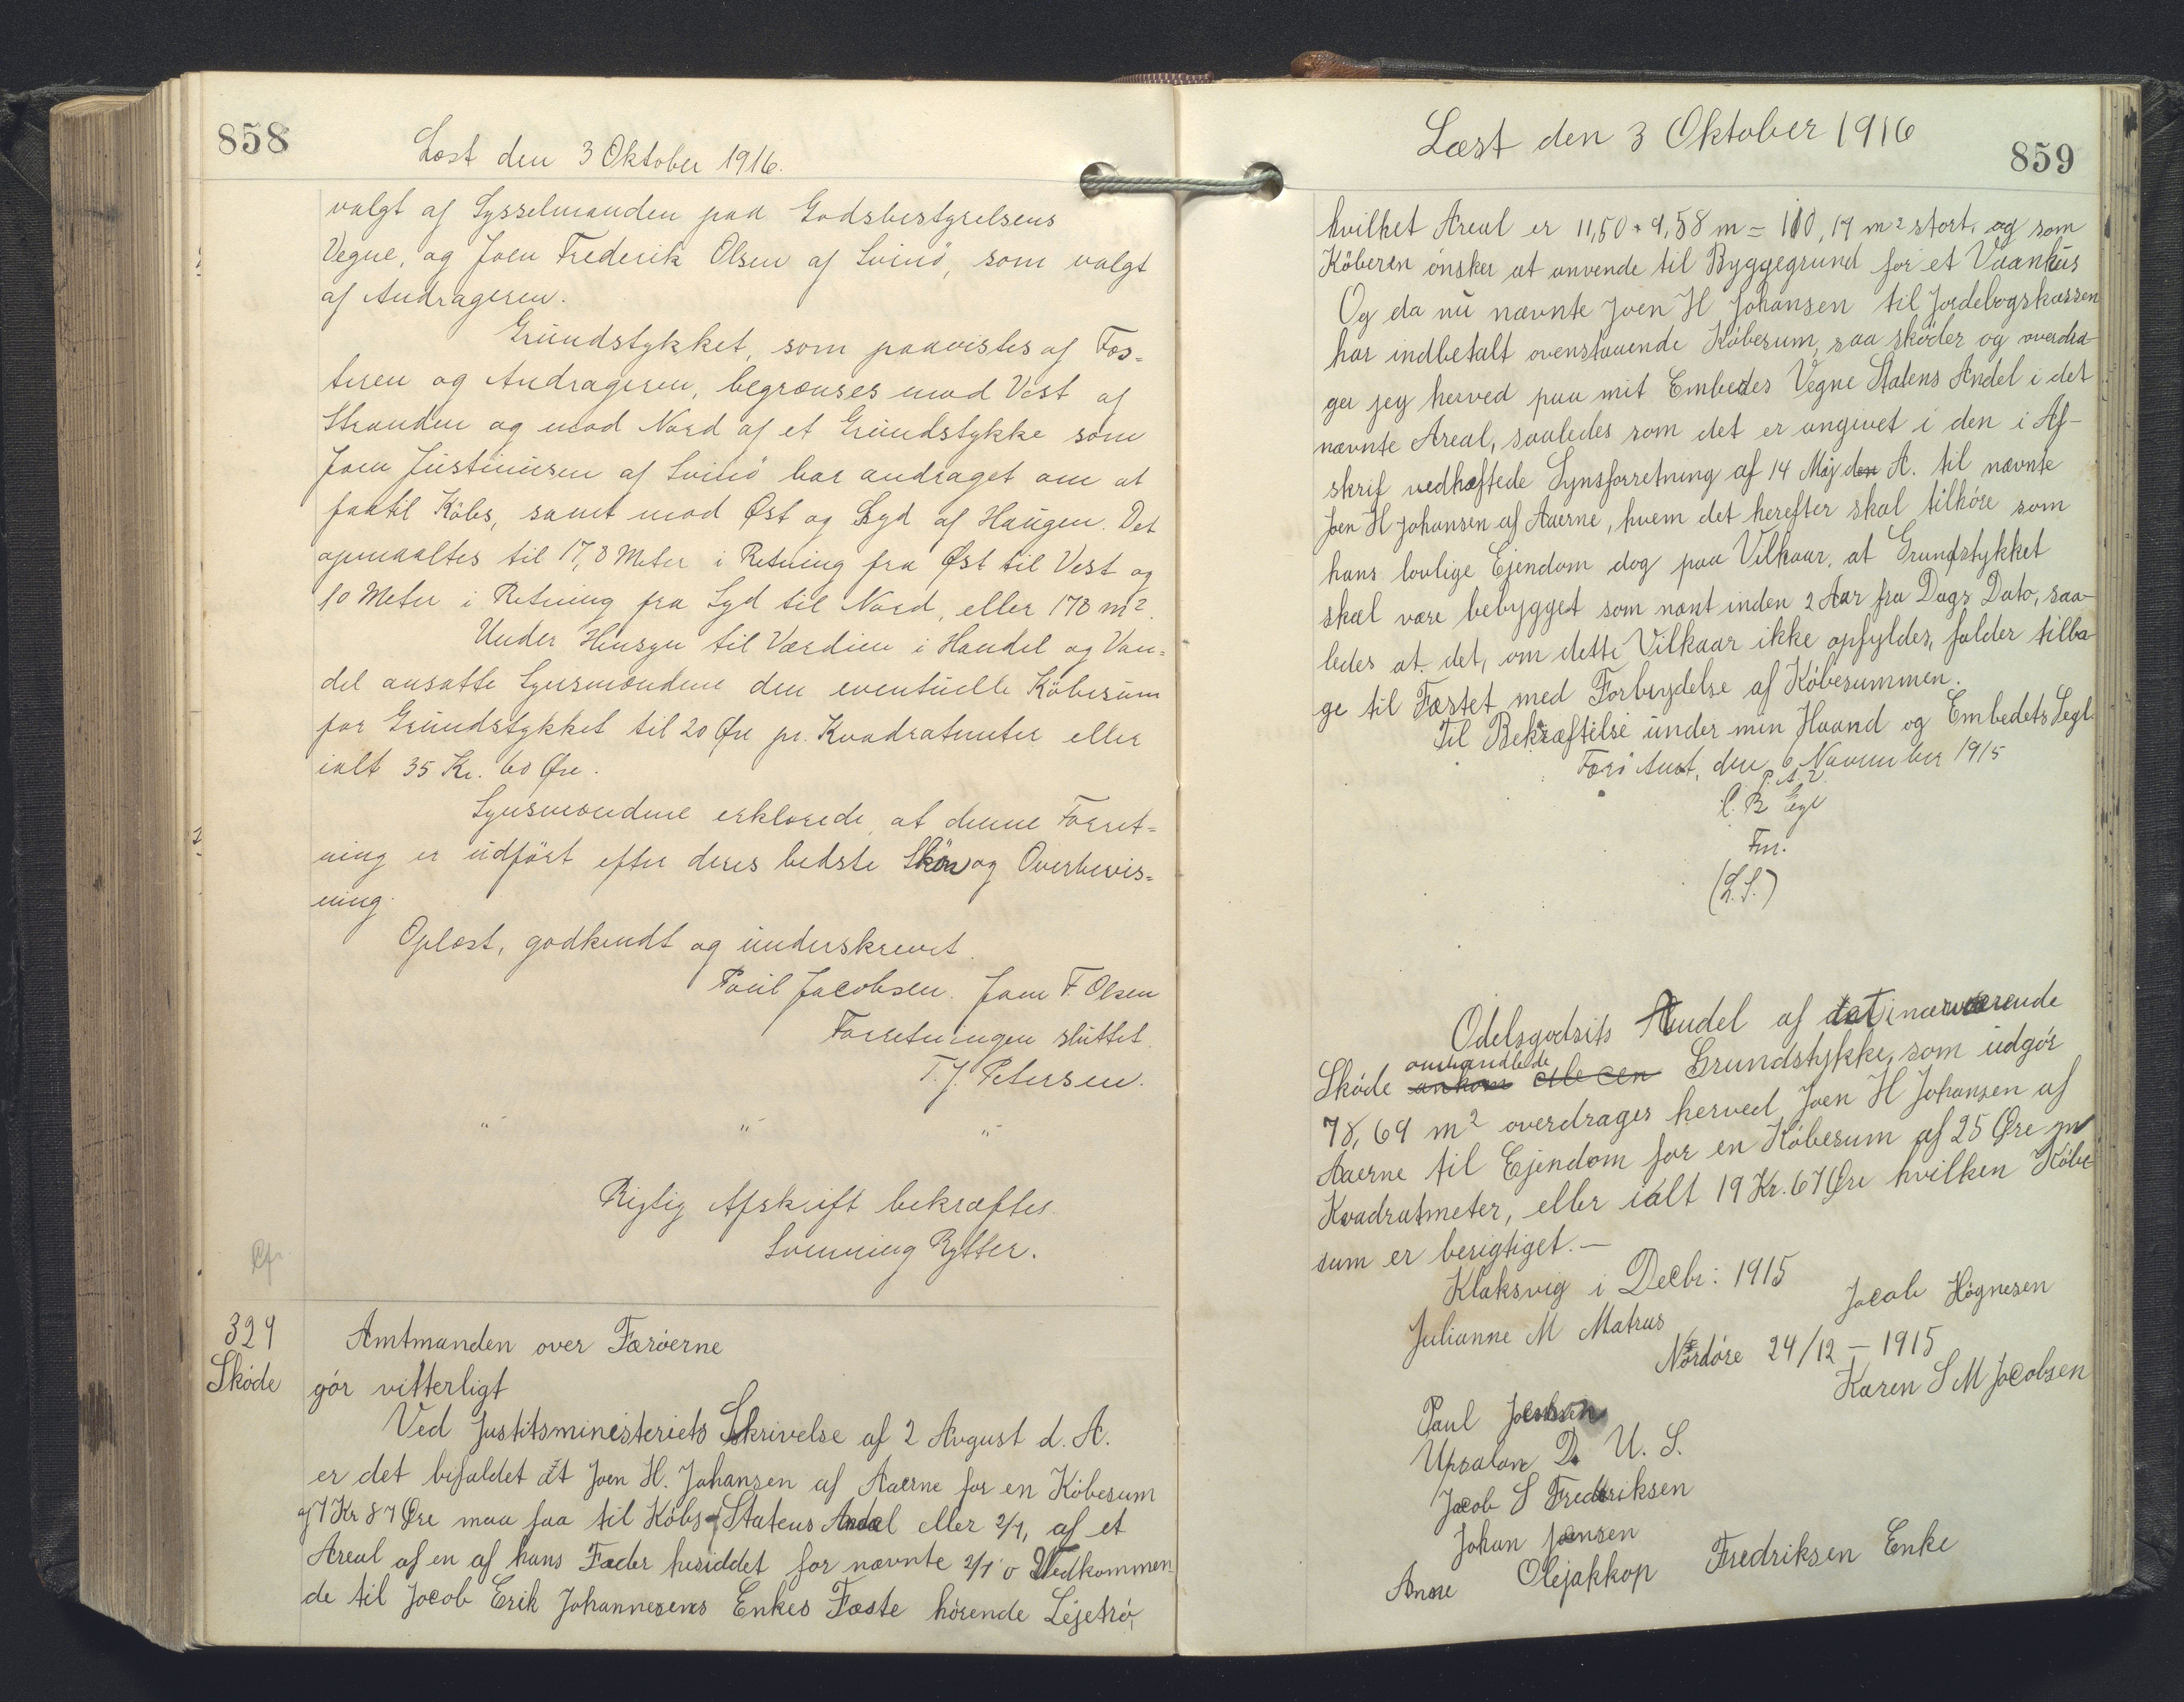 858
Læst den 3 Oktober 1916.
valgt af Sysselmanden paa Godsbestyrelsens
Vegne, og Joen Frederik Olsen af Svinö, som valgt
af Andrageren.
Grundstykket, som paavistes af Fæs-
teren og Andrageren, begrænses mod Vest af
Stranden og mod Nord af et Grundstykke som
Joen Justinusen af Svinö har andraget om at
faa til Købs, samt mod Øst og Syd af Haugen. Det
opmaaltes til 17,8 Meter i Retning fra Øst til Vest og
10 Meter i Retning fra Syd til Nord, eller 178 m².
Under Hensyn til Værdien i Handel og Van-
del ansatte Synsmændene den eventuelle Köbesum
for Grundstykket til 20 Øre pr. Kvadratmeter eller
ialt 35 Kr. 60 Øre.
Synsmændene erklærede, at denne Forret-
ning er udfört efter deres bedste Skön og Overbevis-
ning.
Oplæst, godkendt og underskrevet.
Poul Jacobsen. Joen F. Olsen
Forretningen sluttet.
T. J. Petersen.
" " "
Rigtig Afskrift bekræftes.
Svenning Rytter.
Cfr
329
Sköde
Amtmanden over Færöerne
gör vitterligt
Ved Justitsministeriets Skrivelse af 2 August d. A.
er det bifaldet at Joen H. Johansen af Aaerne for en Köbesum
af 7 Kr 87 Øre maa faa til Köbs Statens Andel eller 2/7, af et
Areal af en af hans Fader besiddet for nævnte 2/7 Vedkommen-
de til Jacob Erik Johannesens Enkes Fæste hörende Lejetrö,
Læst den 3 Oktober 1916
859
hvilket Areal er 11,50 × 9,58 m = 110,17 m² stort, og som
Köberen önsker at anvende til Byggegrund for et Vaanhus
Og da nu nævnte Joen H Johansen til Jordebogskassen
har indbetalt ovenstaaende Köbesum, saa sköder og overdra-
ger jeg herved paa mit Embedes Vegne Statens Andel i det
nævnte Areal, saaledes som det er angivet i den i Af-
skrif vedhæftede Synsforretning af 14 Maj den A. til nævnte
Joen H Johansen af Aaerne, hvem det herefter skal tilhöre som
hans lovlige Ejendom dog paa Vilkaar, at Grundstykket
skal være bebygget som nænt inden 2 Aar fra Dags Dato, saa-
ledes at det, om dette Vilkaar ikke opfyldes, falder tilba-
ge til Fæstet med Forbrydelse af Köbesummen.
Til Bekræftelse under min Haand og Embedets Segl.
Færö Amt, den 6 November 1915
P. A. V.
C. B.
Fm.
(L.S.)
Odelsgodsets Andel af det i nærværende
Sköde omhandlede Grundstykke, som udgör
78,69 m² overdrages herved Joen H Johansen af
Aaerne til Ejendom for en Köbesum af 25 Øre pr
Kvadratmeter, eller ialt 19 Kr. 67 Øre hvilken Köbe-
sum er berigtiget.—
Klaksvig i Decbr: 1915
Julianne M Matras
Jacob Högnesen
Nordöre 24/12 – 1915
Karen S M Jacobsen
Paul
Upsalon D. U. S.
Jacob S Fredriksen
Johan Joensen
Anne Olejakkop Fredriksen Enke